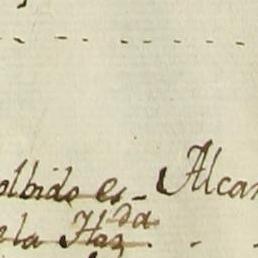 olbido es- Alcan
la Haz.da